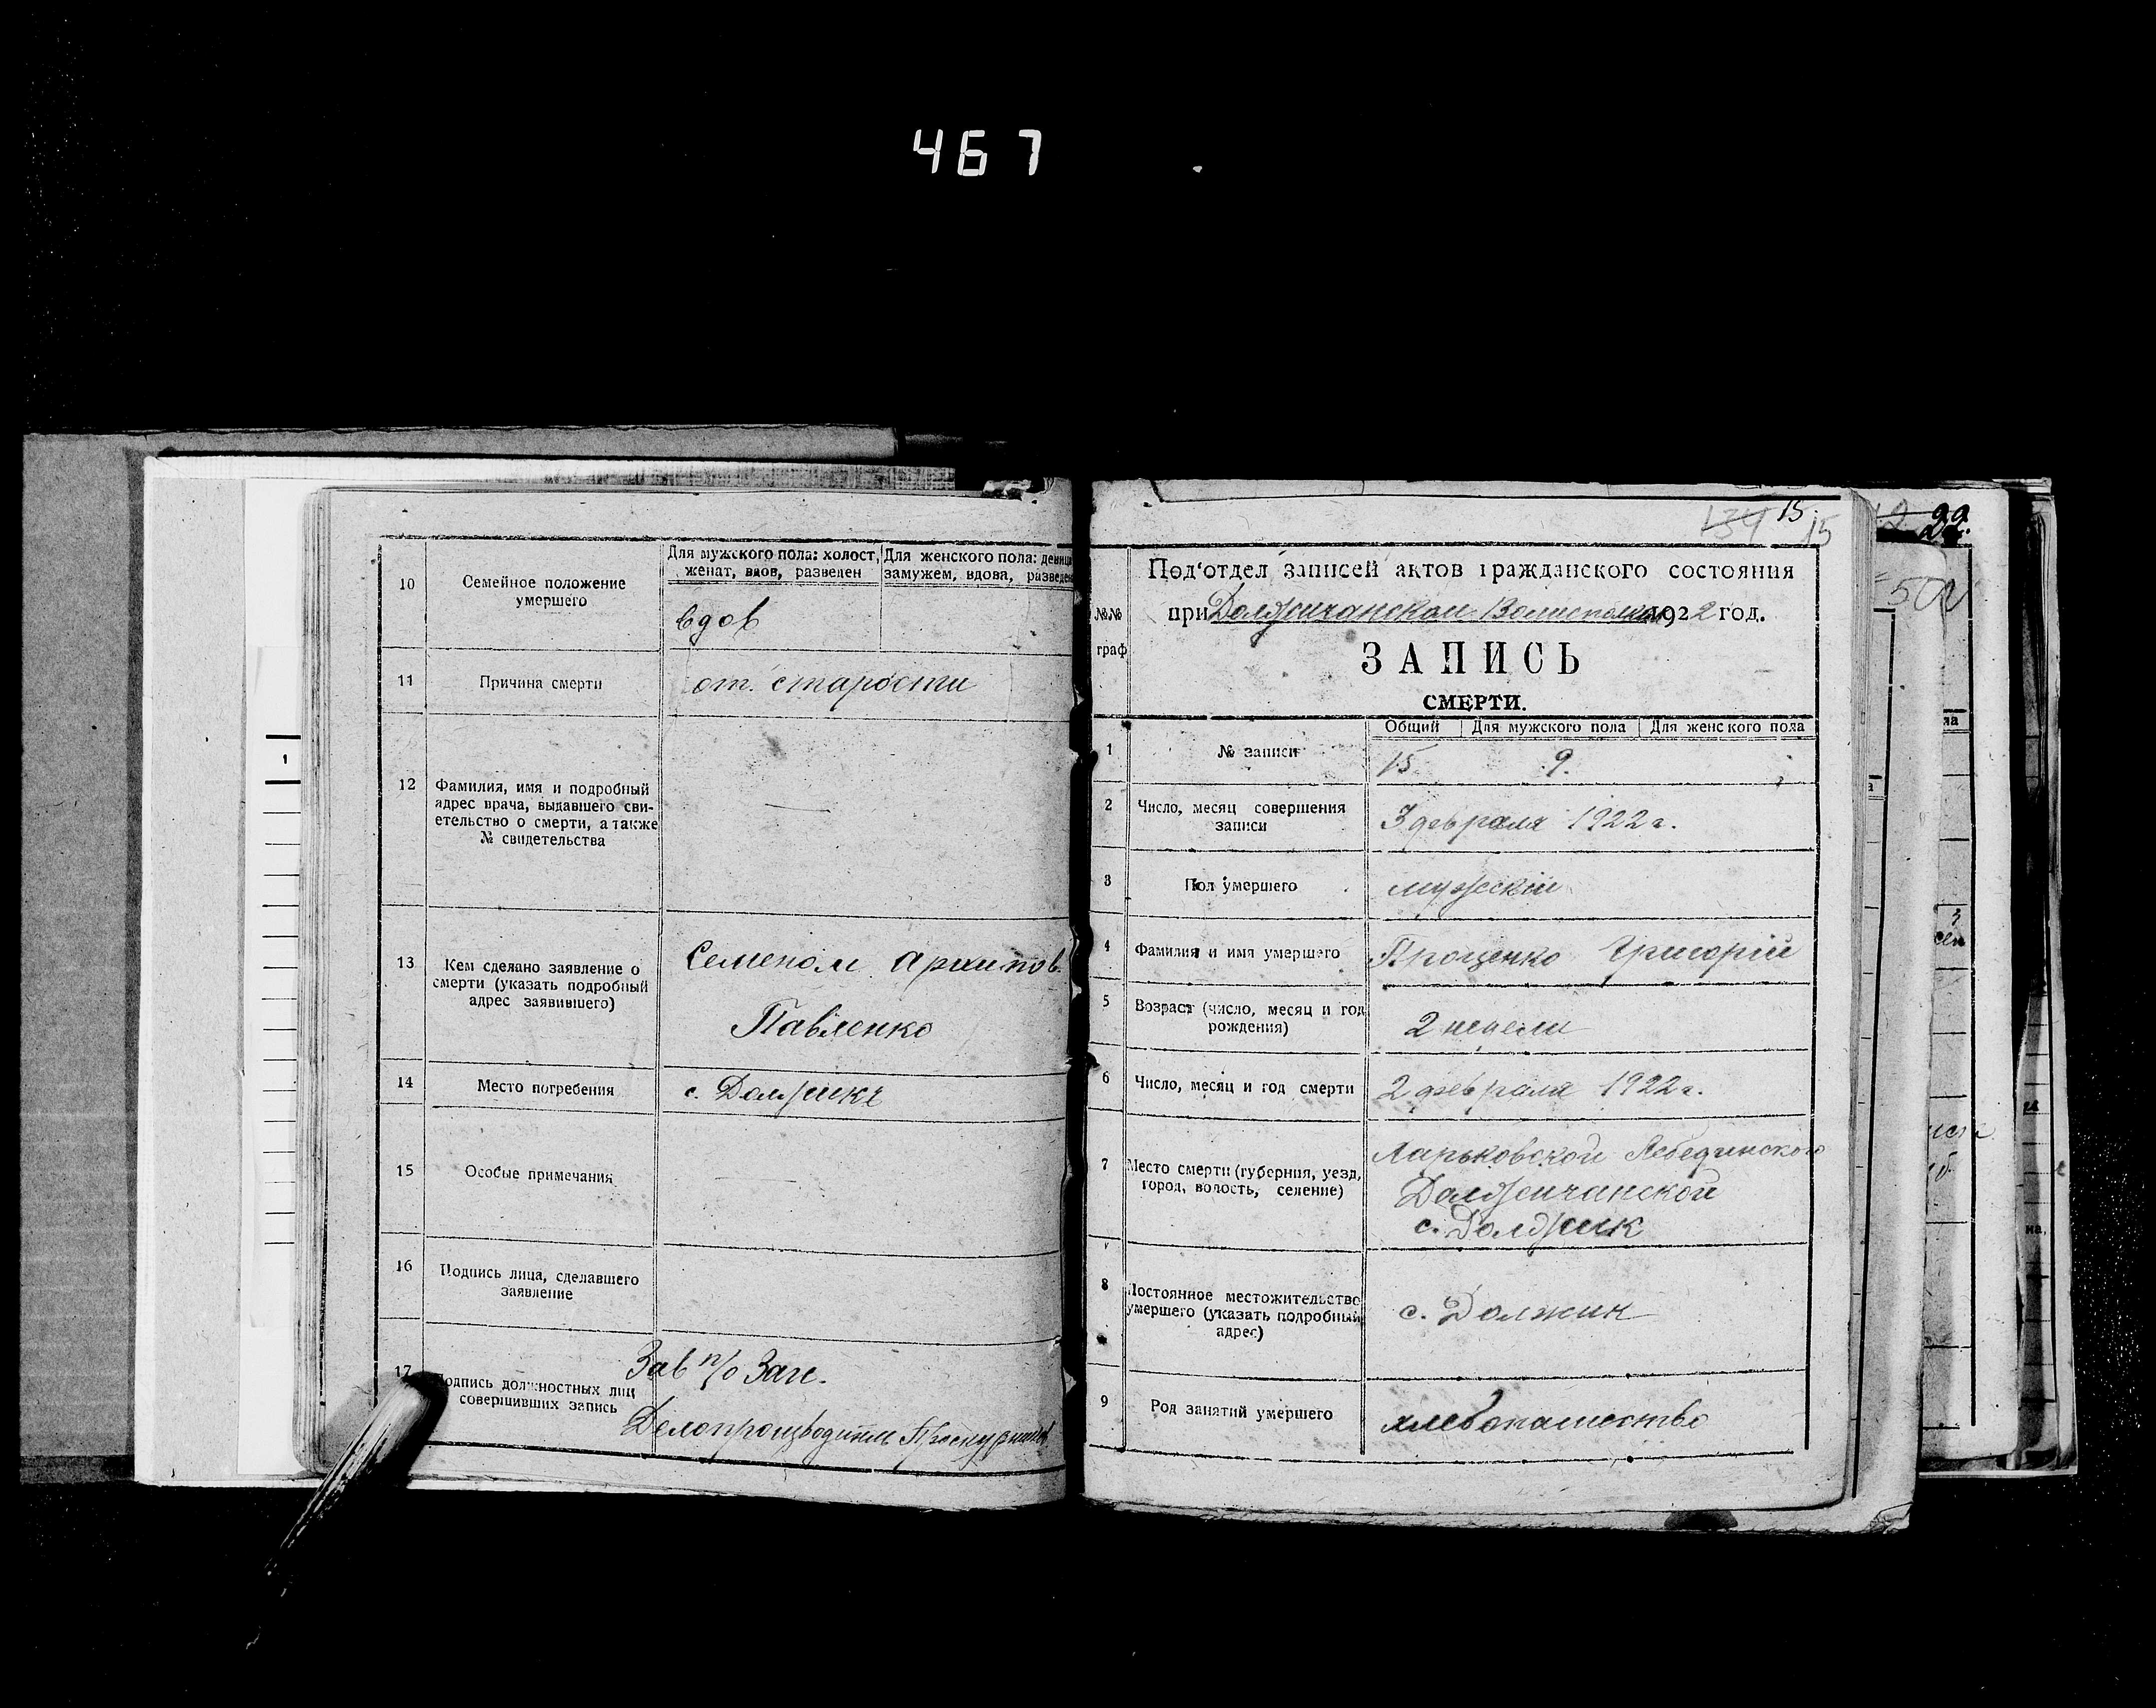 467
10
Семейное положение
умершего
Для мужского пола: холост,
женат, вдов, разведен
Для женского пола: девица
замужем, вдова, разведен
вдов
11
Причина смерти
от старости
12
Фамилия, имя и подробный
адрес врача, выдавшего сви-
етельство о смерти, а также
№ свидетельства
13
Кем сделано заявление о
смерти (указать подробный
адрес заявившего)
Семеном Архипов.
Павленко
14
Место погребения
с. Должик
15
Особые примечания
16
Подпись лица, сделавшего
заявление
17
одпись должностных лиц
совершивших запись
Зав п/о Заге.
Делопроизводитель
134 15. 15
№№
граф
Под'отдел записей актов гражданского состояния
при Должичанском Волисполком 1922 год.
ЗАПИСЬ
СМЕРТИ.
1
№ записи
Общий
Для мужского пола
Для женского пола
15
9.
2
Число, месяц совершения
записи
3 февраля 1922 г.
3
Пол умершего
мужскій
4
Фамилия и имя умершего
Проценко Григорій
5
Возраст (число, месяц и год
рождения)
2 недели
6
Число, месяц и год смерти
2 февраля 1922 г.
7
Место смерти (губерния, уезд,
город, волость, селение)
Харьковской Лебединского
Должичанской
с. Должик
8
Постоянное местожительство
умершего (указать подробный
адрес)
с. Должик
9
Род занятий умершего
хлебопашество
22.
500